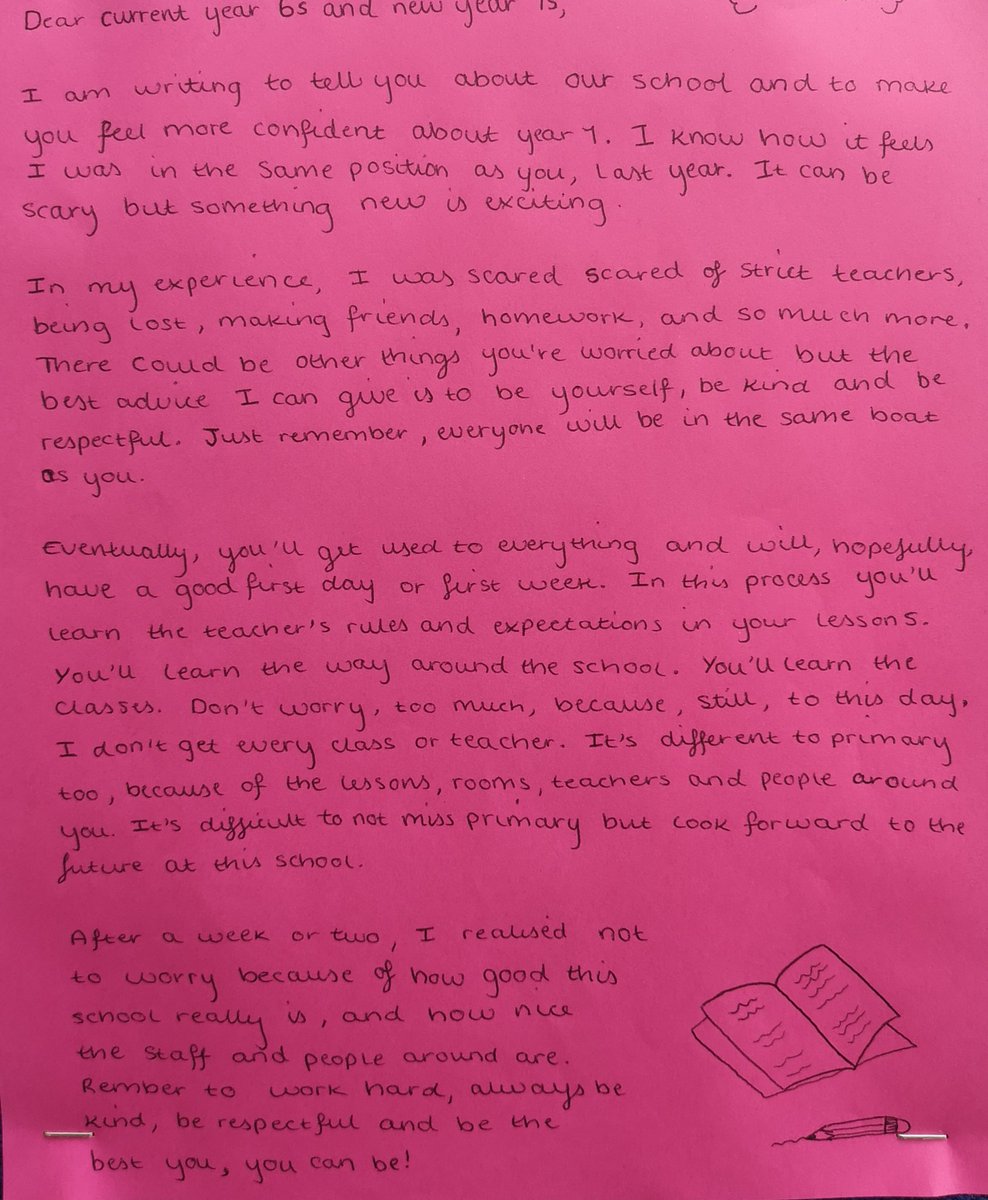 Dear current year 6s and new year 7s,
I am writing to tell you about our school and to make
you feel more confident about year 7. I know how it feels
I was in the same position as you, last year. It can be
scary but something new is exciting.
In my experience, I was scared scared of strict teachers,
being lost, making friends, homework, and so much more.
There could be other things you're worried about but the
best advice I can give is to be yourself, be kind and be
respectful. Just remember, everyone will be in the same boat
as you.
Eventually, you'll get used to everything and will, hopefully,
have a good first day or first week. In this process you'll
learn the teacher's rules and expectations in your lessons.
You'll learn the way around the school. You'll learn the
classes. Don't worry, too much, because, still, to this day,
I don't get every class or teacher. It's different to primary
too, because of the lessons, rooms, teachers and people around
you. It's difficult to not miss primary but look forward to the
future at this school.
After a week or two, I realised not
to worry because of how good this
school really is, and how nice
the staff and people around are.
Rember to work hard, always be
kind, be respectful and be the
best you, you can be!